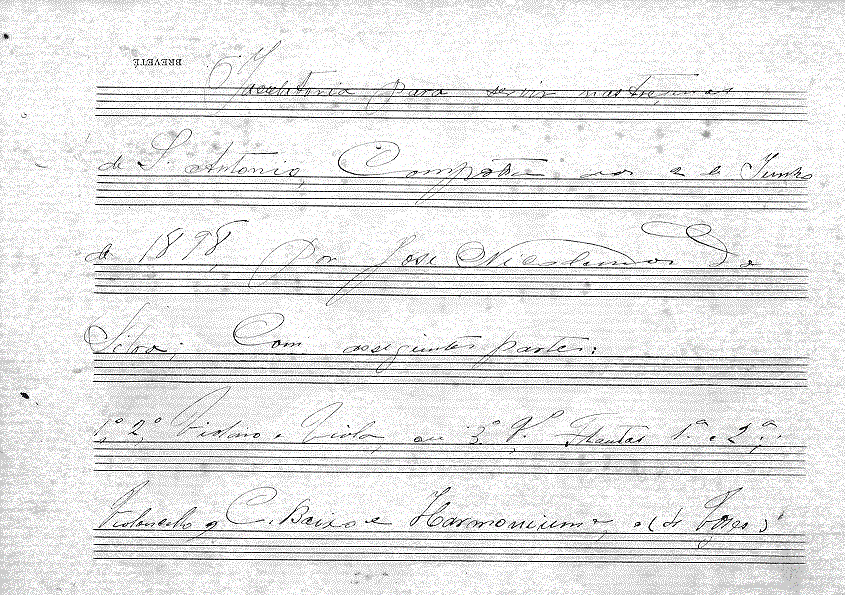 BREVETÉ
Jaculatoria para servir nas trezenas
de S. Antonio, Composta aos de Junho
de 1898, Por José Nicodemos da
Silva; Com asseguintes partes:
1º 2º Violino e Viola, ou 3º Vº Flautas 1ª e 2ª,
Violoncello e C. Baixo e Harmonium, e (4 Vozes)